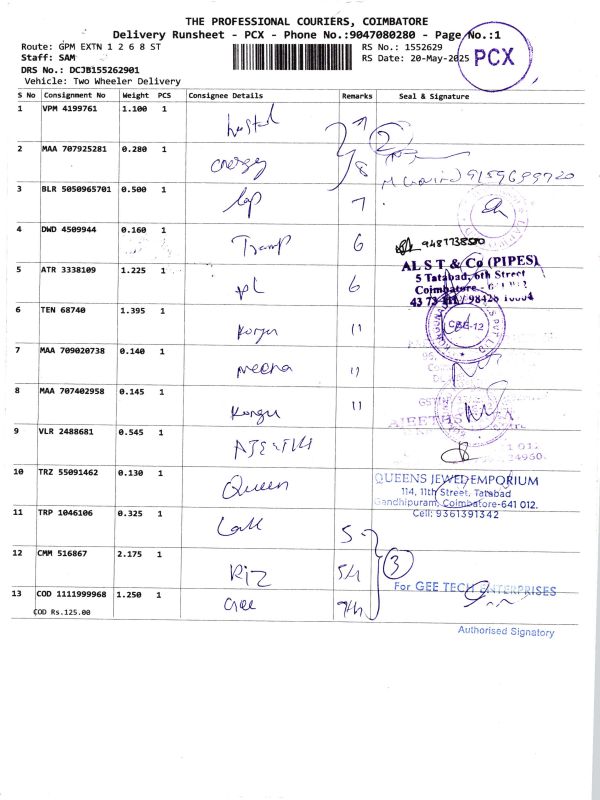 THE PROFESSIONAL COURIERS, COIMBATORE
Delivery Runsheet - PCX - Phone No.:9047080280 - Page No.:1
Route: GPM EXTN 1 2 6 8 ST
RS No.: 1552629
Staff: SAM
RS Date: 20-May-2025
PCX
DRS No.: DCJB155262901
Vehicle: Two Wheeler Delivery
S No Consignment No Weight PCS Consignee Details Remarks Seal & Signature
1 VPM 4199761 1.100 1 7
2 MAA 707925281 0.280 1 energy 8 2
9159699720
3 BLR 5050965701 0.500 1 lap 7
4 DWD 4509944 0.160 1 Tramp 6
5 ATR 3338109 1.225 1 pl 6
AL S T & Co (PIPES)
5 Tatabad, 6th Street
Coimbatore -
6 TEN 68740 1.395 1 Kongu 11
CBE-12
7 MAA 709020738 0.140 1 meena 11
8 MAA 707402958 0.145 1 Kongu 11
9 VLR 2488681 0.545 1
10 TRZ 55091462 0.130 1 Queen
QUEENS JEWEL EMPORIUM
114, 11th Street, Tatabad
Gandhipuram, Coimbatore-641 012.
Cell: 9361391342
11 TRP 1046106 0.325 1 5
12 CMM 516867 2.175 1 Riz 5th 3
For GEE TECH ENTERPRISES
13 COD 1111999968 1.250 1 Gee 7th
COD Rs.125.00
Authorised Signatory